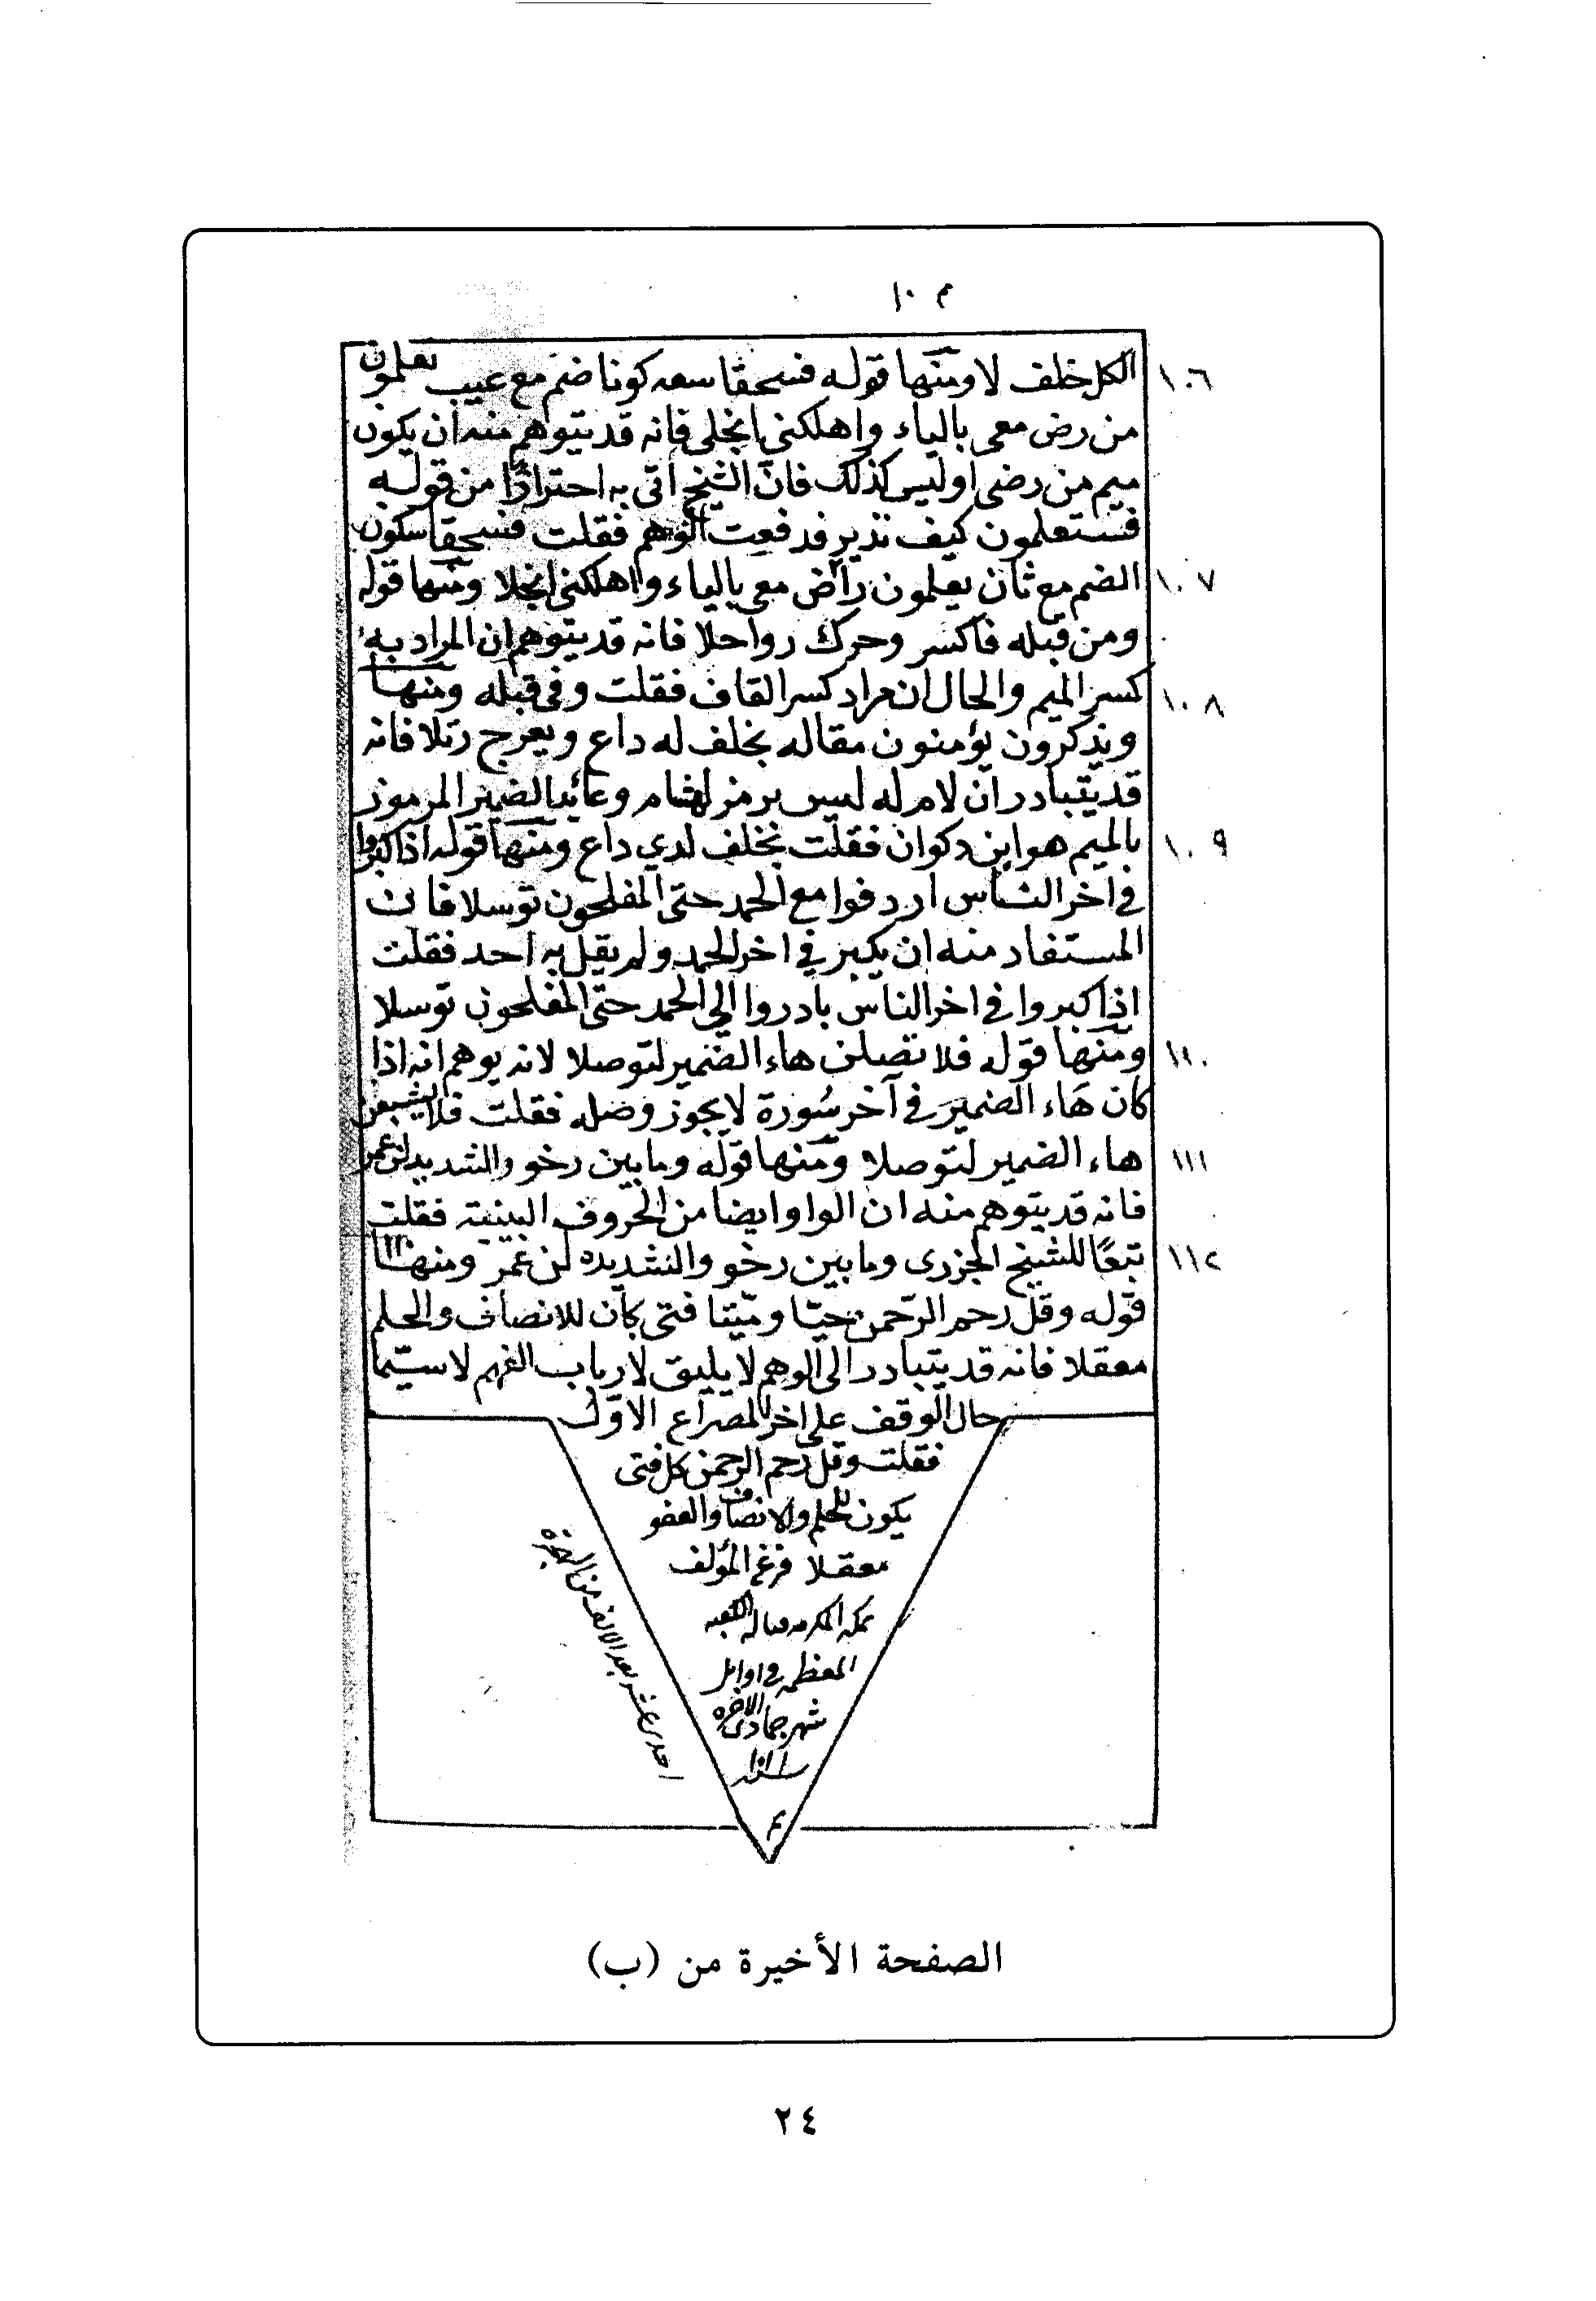 م ١٠
١٠٦ الكل خلف لا ومنها قوله فسحقا سعه كونا ضم مع عيب تعلمون
من رض معى بالياء واهلكنى انجلى فانه قد يتوهم منه ان يكون
ميم من رضى اوليس كذلك فان الشيخ اتى به احترازا من قوله
فستعلمون كيف نذير فدفعت الوهم فقلت فسحقا سكون
١٠٧ الضم مع ثان يعلمون راض معى بالياء واهلكنى انجلا ومنها قوله
ومن قبله فاكسر وحرك روا حلا فانه قد يتوهم ان المراد به
١٠٨ كسر الميم والحال ان مراد كسر القاف فقلت وفى قبله ومنها
ويذكرون يؤمنون مقاله بخلف له داع ويعرج رتلا فانه
قد يتبادر ان لام له ليس برمز لهشام وعائد الضمير المرموز
١٠٩ بالميم هو ابن دكوان فقلت بخلف لدي داع ومنها قوله اذا كبروا
في اخر الناس اردفوا مع الحمد حتى المفلحون توسلا فان
المستفاد منه ان يكبر في اخر الحمد ولم يقل به احد فقلت
اذا كبروا في اخر الناس بادروا الي الحمد حتى المفلحون توسلا
١١٠ ومنها قوله فلا تصلن هاء الضمير لتوصلا لانه يوهم انه اذا
كان هاء الضمير في آخر سورة لا يجوز وصله فقلت فلا تشبعن
١١١ هاء الضمير لتوصلا ومنها قوله وما بين رخو والشديد لن عمر
فانه قد يتوهم منه ان الواو ايضا من الحروف البينية فقلت
١١٢ تبعًا للشيخ الجزرى وما بين رخو والشديده لن عمر ومنها
قوله وقل رحم الرحمن حيّا وميّتا فتى كان للانصاف والحلم
معقلا فانه قد يتبادر الى الوهم لا يليق لارباب الفهم لا سيّما
حال الوقف على اخر المصراع الاوّل
فقلت وقل رحم الرحمن كل فتى
يكون للحلم والانصاف والعفو
معقلا فرغ المؤلف
بمكه المكرمه قباله الكعبه
المعظمه في اوايل
شهر جمادى الاخره
احدى عشر بعد الالف من الهجرة
الصفحة الأخيرة من (ب)
٢٤